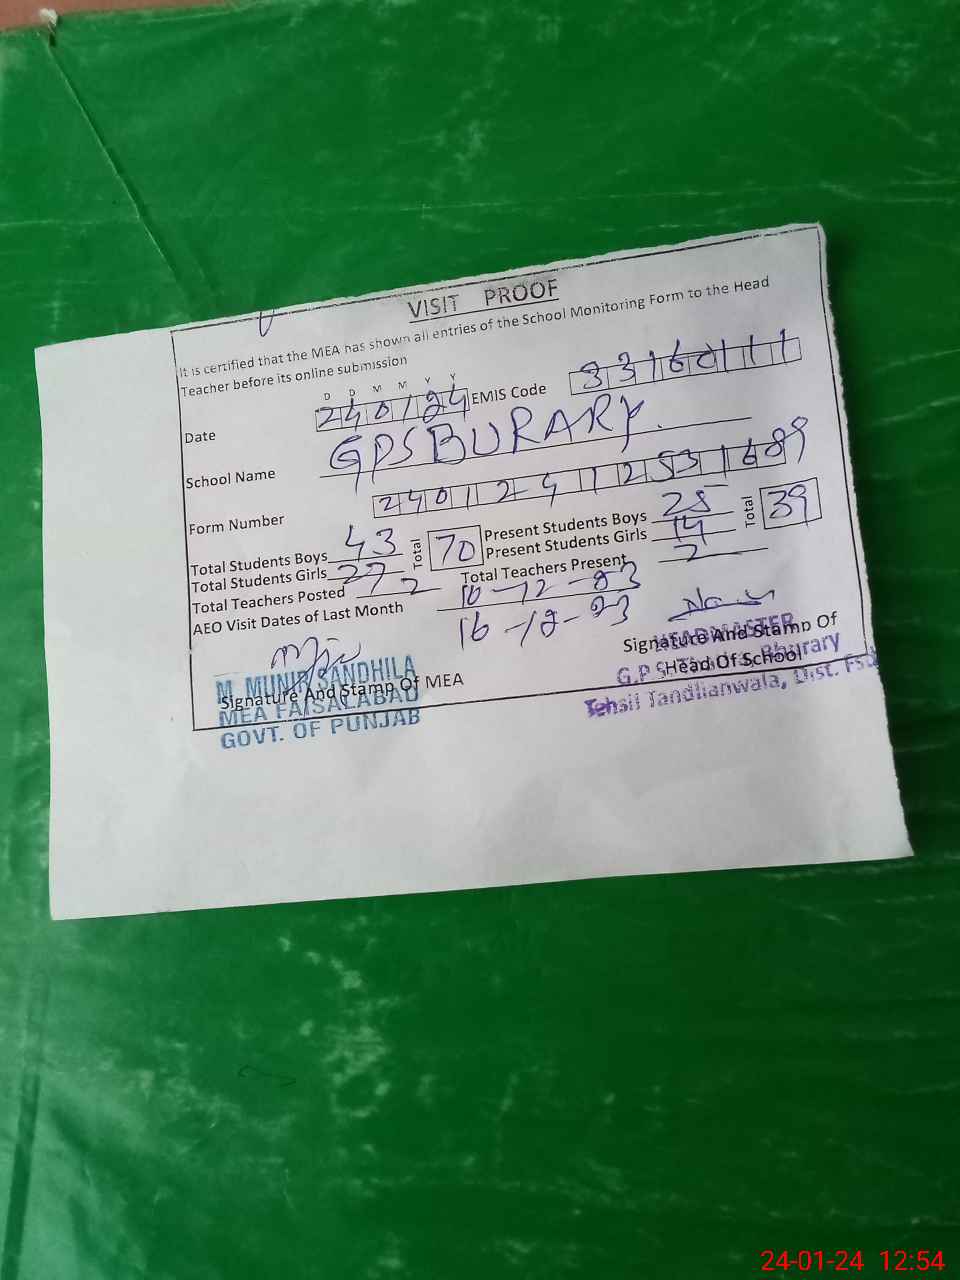 VISIT PROOF
It is certified that the MEA has shown all entries of the School Monitoring Form to the Head
Teacher before its online submission
D D M M Y Y
Date 240124 EMIS Code 33160111
School Name GPS BURARY.
Form Number 24012412531689
Total Students Boys 43 Total 70 Present Students Boys 25 Total 39
Total Students Girls 27 Present Students Girls 14
Total Teachers Posted 2 Total Teachers Present 2
AEO Visit Dates of Last Month 16-12-23
16-12-23
Signature And Stamp Of MEA
M. MUNIR GANDHILA
MEA FAISALABAD
GOVT. OF PUNJAB
Signature And Stamp Of
Head Of School
HEADMASTER
G.P.S. Bhurary
Tehsil Tandlianwala, Dist. Fsd
24-01-24 12:54